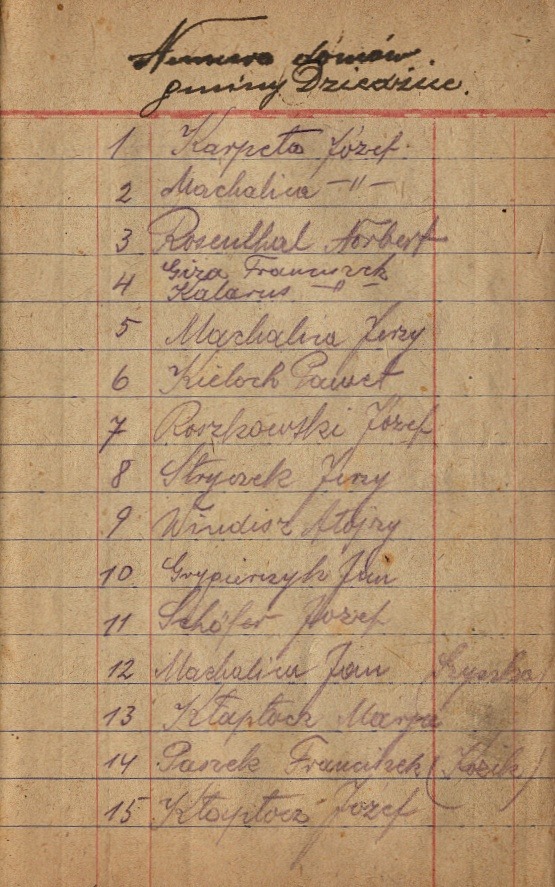 Numera domów
gminy Dziedzice.
1 Karpeta Józef
2 Machalica —"—
3 Rosenthal Norbert
4 Giza Franciszek
Kalarus —"—
5 Machalica Jerzy
6 Kieloch Paweł
7 Roszkowski Józef
8 Stryczek Jerzy
9 Windisz Alojzy
10 Grypierczyk Jan
11 Schäfer Józef
12 Machalica Jan (Szyszka)
13 Kłaptocz Marja
14 Paszek Franciszek (Kozik)
15 Kłaptocz Józef